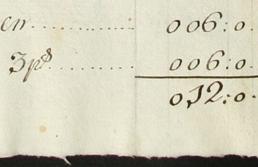 en ............... 006:0.
3p̃s .......... 006:0.
012:0.